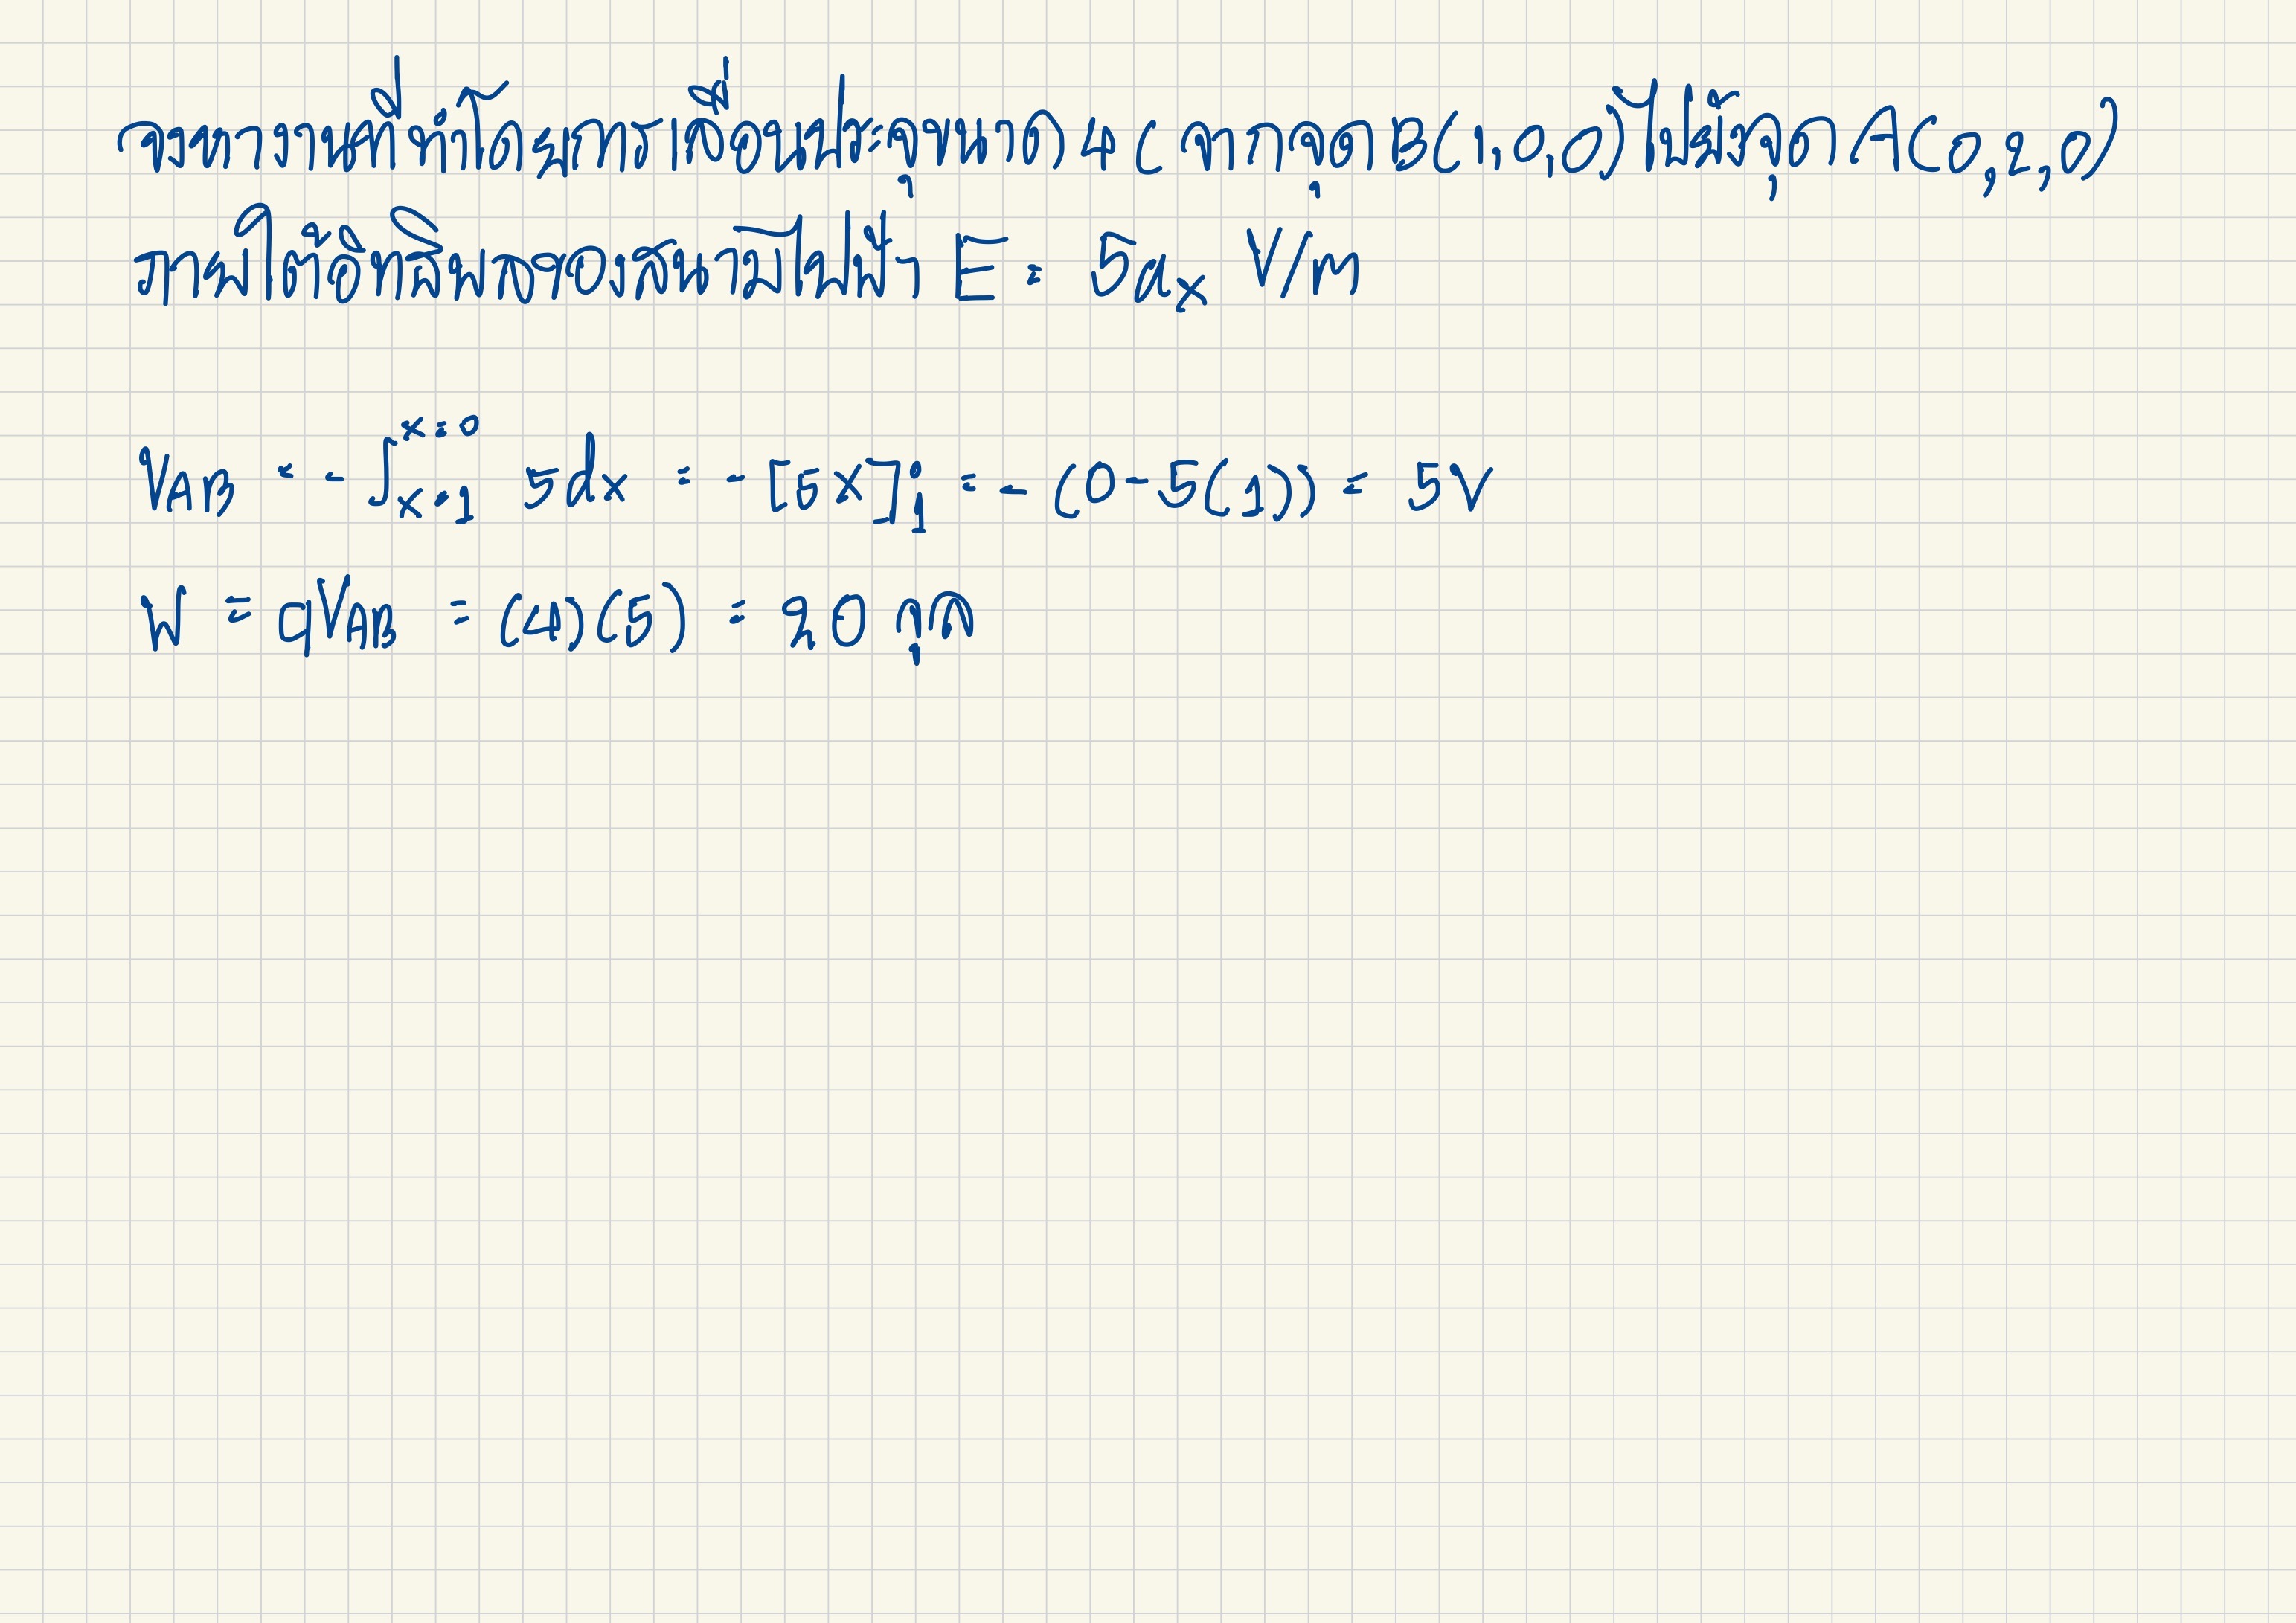 จงหางานที่ทำในการเคลื่อนประจุขนาด 4C จากจุด B(1,0,0) ไปยังจุด A(0,2,0)
ภายใต้อิทธิพลของสนามไฟฟ้า E = 5aₓ V/m
V_AB = -∫_{x=1}^{x=0} 5dx = -[5x]₁⁰ = -(0-5(1)) = 5V
W = qV_AB = (4)(5) = 20 จูล